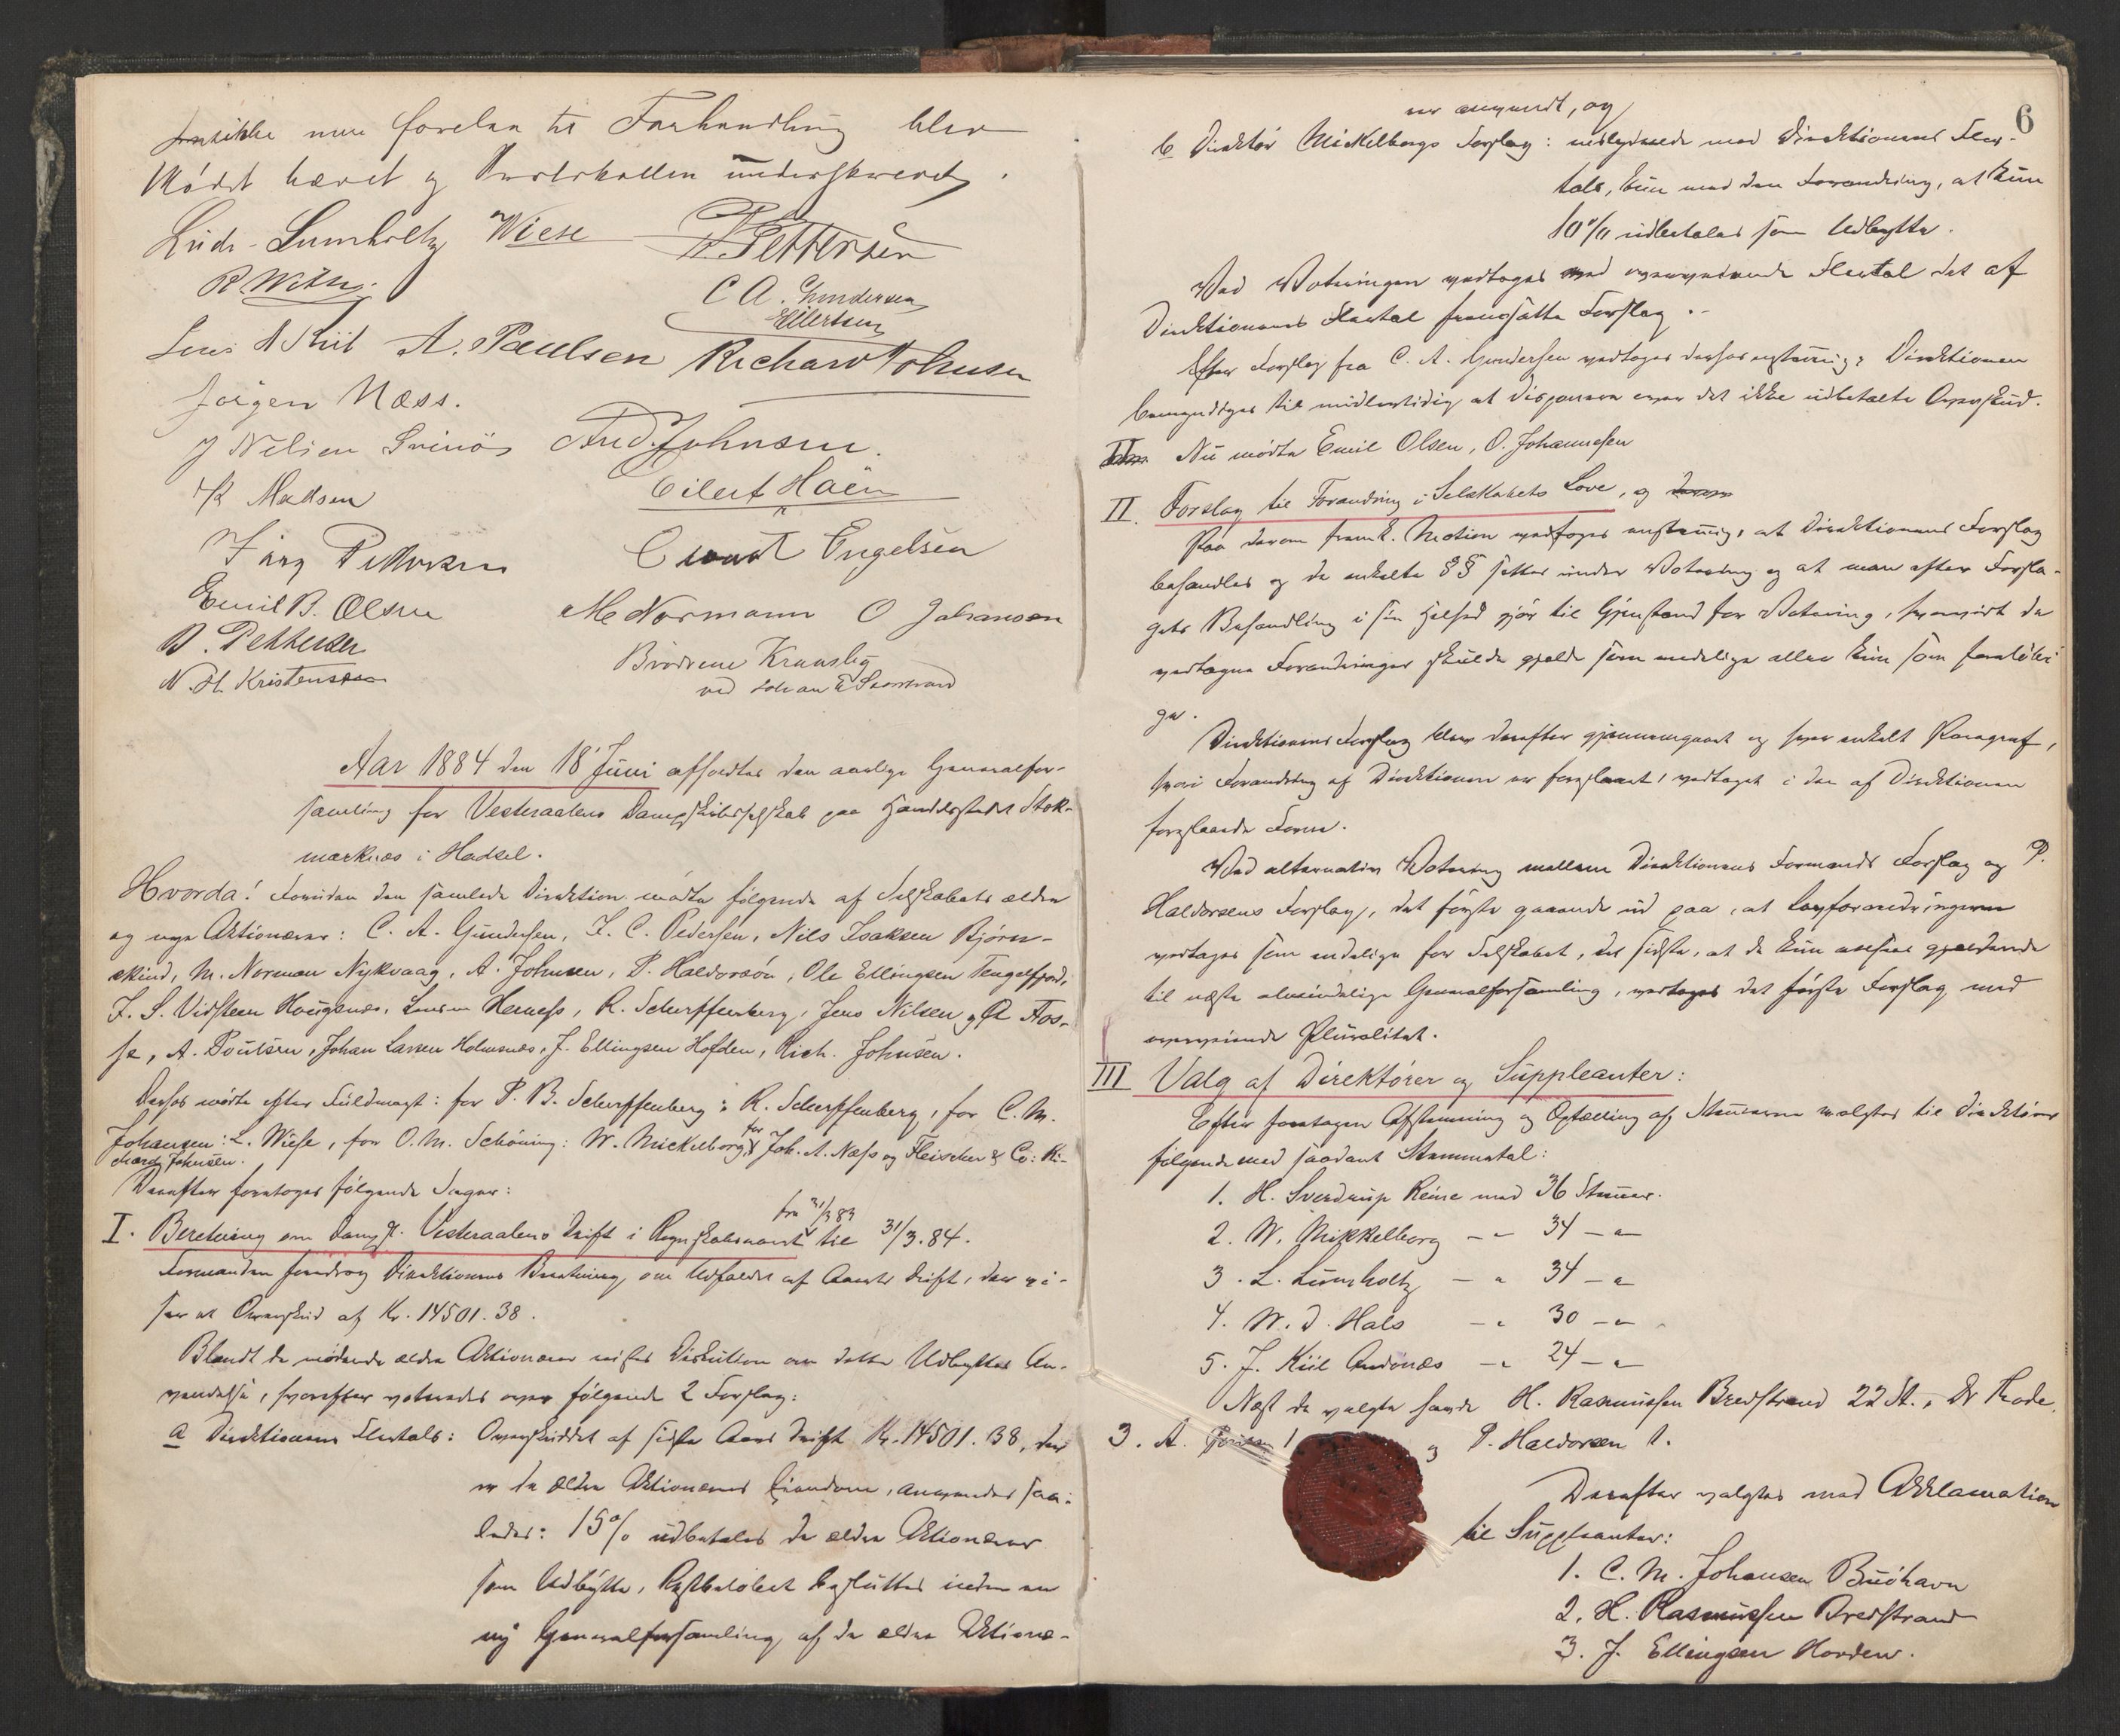 ikke mere forelaa til Forhandling blev
Mödet hævet og Protokollen underskrevet.
Ludv. Lumholtz Wiese P. Pettersen
R Wiese
C A. Gundersen
Ellertsen
Jens A Kiil A. Paulsen Richard Johnsen
Jörgen Næss.
J Nelsen Svinös And. Johnsen.
K Madsen Eilert Haën
Pettersen Cornt Engelsen
Emil B. Olsen M Normann O Johansen
B. Pettersen Brödrene
N. H. Kristensen ved Johan E
Aar 1884 den 18 Juni afholdtes den aarlige Generalfor-
samling for Vesteraalens Dampskibsselskab paa Handelsstedet Stok-
marknæs i Hadsel.
Hvorda! Foruden den samlede Direktion mødte følgende af Selskabets ældre
og nye Aktionærer: C. A. Gundersen, F. C. Pedersen, Nils Isaksen Bjørn-
skind, M. Norman Nykvaag, A. Johnsen, P. Haldorsøn, Ole Ellingsen Tengelfjord,
J. S. Vidsteen Haugsnæs, Herness, R. Scherpffenberg, Jens Nilsen, A Aas-
se, A. Poulsen, Johan Larsen Holmsnæs, J. Ellingsen Hofden, Rich. Johnsen.
Derhos mødte efter Fuldmagt: for P. B. Scherpffenberg: R. Scherpffenberg, for C. M.
Johansen: L. Wiese, for O. M. Schöning: W. Mickelborg, for Joh. A. Næss og Fleischer & Co: Ri-
chard Johnsen.
Derefter foretoges følgende Sager:
I. Beretning om Dampsk. Vesteraalens Drift i Regnskabsaaret fra 31/3 83 til 31/3. 84.
Formanden foredrog Direktionens Beretning om Udfaldet af Aarets Drift, der vi-
ser et Overskud af Kr. 14501. 38.
Blandt de mødende ældre Aktionærer reistes Diskution om dette Udbyttes An-
vendelse, hvorefter voteredes over følgende 2 Forslag:
a Direktionens Flertals: Overskuddet af sidste Aars Drift Kr. 14501. 38, der
er de ældre Aktionærers Eiendom, anvendes saa-
ledes: 15% udbetales de ældre Aktionærer
som Udbytte, Restbeløbet besluttes inden en
ny Generalforsamling af de ældre Aktionæ-
6
rer anvendt, og
b Direktör Mickelborgs Forslag: enslydende med Direktionens Fler-
tals, kun med den Forandring, at kun
10% udbetales som Udbytte.
Ved Voteringen vedtoges med overveiende Flertal det af
Direktionens Flertal fremsatte Forslag.
Efter Forslag fra C. A. Gundersen vedtoges derhos enstemmig: Direktionen
bemyndiges til midlertidig at disponere over det ikke udbetalte Overskud.
Nu mödte Emil Olsen, O. Johannesen
II. Forslag til Forandring i Selskabets Love, og
Paa derom frems. Motion vedtoges enstemmig, at Direktionens Forslag
behandles og de enkelte §§ sættes under Votering og at man efter Forsla-
gets Behandling i sin Helhed gjör til Gjenstand for Votering, hvorvidt de
vedtagne Forandringer skulde gjælde som endelige eller kun som foreløbi-
ge.
Direktionens Forslag blev derefter gjennemgaaet og hver enkelt Paragraf,
hvori Forandring af Direktionen er foreslaaet, vedtaget i den af Direktionen
foreslaaede Form.
Ved alternativ Votering mellem Direktionens Formands Forslag og P.
Haldorsens Forslag, det første gaaende ud paa, at Lovforandringerne
vedtages som endelige for Selskabet, det sidste, at de kun ansees gjældende
til næste almindelige Generalforsamling, vedtoges det første Forslag med
overveiende Pluralitet.
III Valg af Direktörer og Suppleanter:
Efter foretagen Afstemning og Optælling af Stemmerne valgtes til Direktörer
følgende med saadant Stemmetal:
1. H. Sverdrup Reine med 36 Stemmer.
2. W. Mikkelborg - " 34 - " -
3. L. Lumholtz - " 34 - " -
4. W. D. Hals - " 30 - " -
5. J. Kiil Andönæs - " 24 - " -
Næst de valgte havde H. Rasmussen Bredstrand 22 St., Dr Thode
3. A. 1 og P. Haldorsen 1.
Derefter valgtes med Akklamation
til Suppleanter:
1. C. M. Johansen Buöhavn
2. H. Rasmussen Bredstrand
3. J. Ellingsen Hovden.